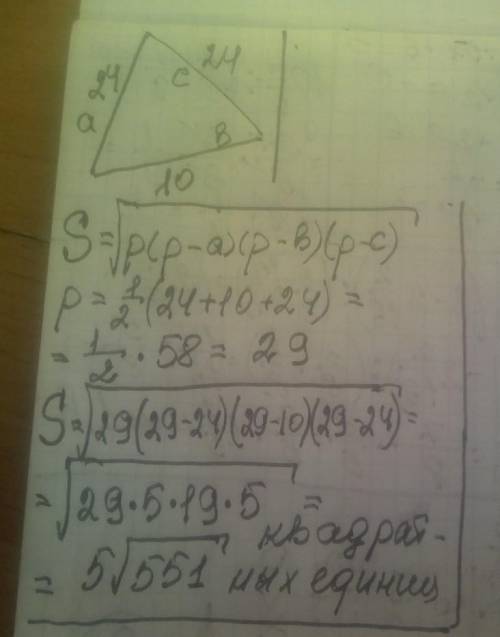 24 24
a c
в
10
S=√p(p-a)(p-в)(p-c)
p=1/2(24+10+24)=
=1/2·58=29
S=√29(29-24)(29-10)(29-24)=
=√29·5·19·5 =
= 5√551 квадрат-
ных единиц